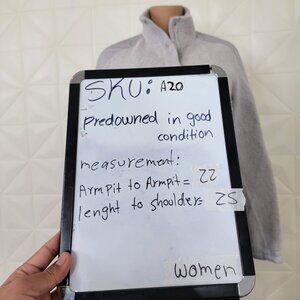 SKU: A20
predowned in good
condition
measurement:
Armpit to Armpit = 22
lenght to shoulder = 25
women